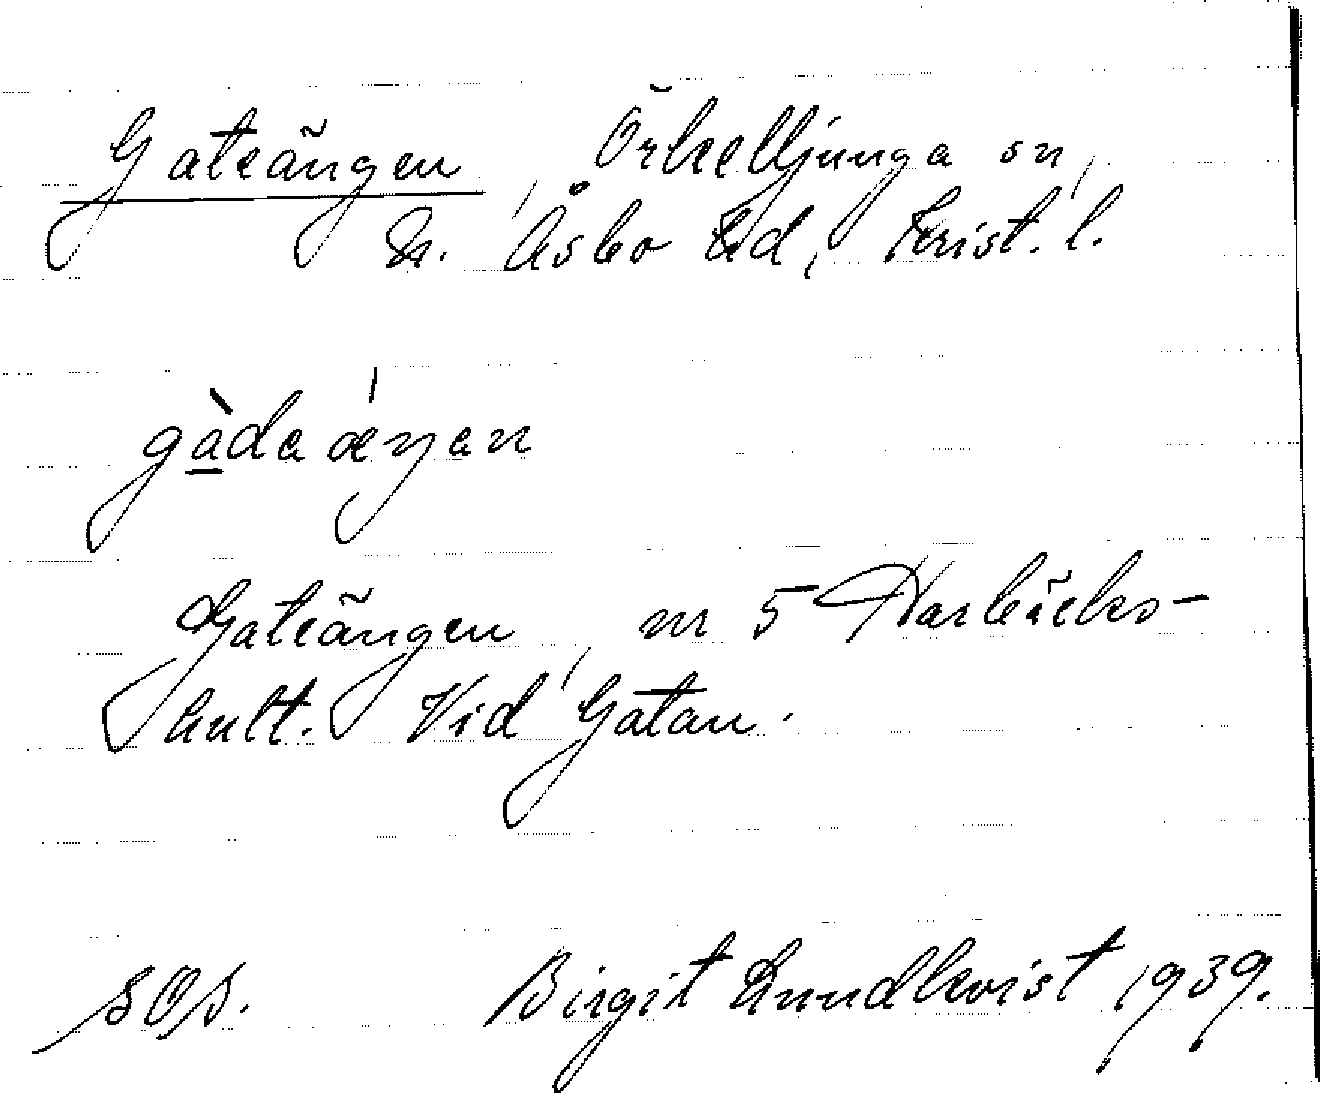 Gateängen, Örkelljunga sn,
N. Åsbo hd, Krist. l.
gàdaæŋan
Gateängen, nr 5 Harbäcks-
hult. Vid Gatan.
SOS. Birgit Lundkvist 1939.